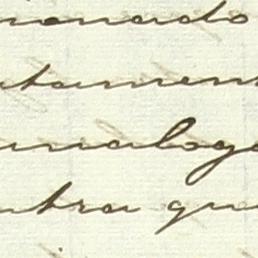 nonado
tamen
analoga
ntra que